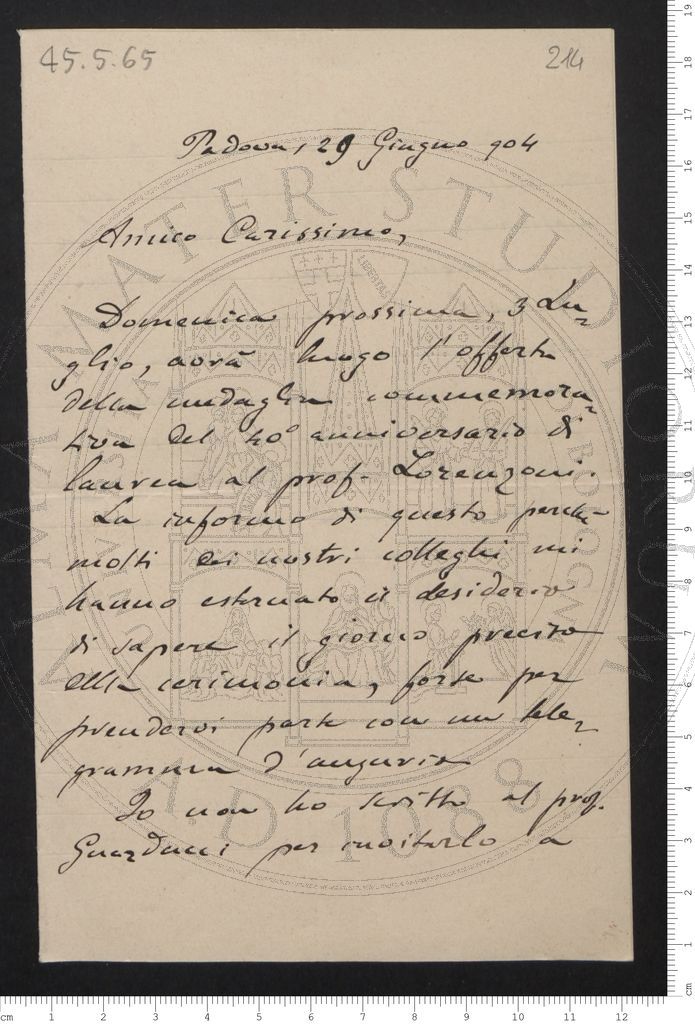 45.5.65 214
Padova, 29 Giugno 904
Amico Carissimo,
Domenica prossima, 3 Lu=
glio, avrà luogo l'offerta
della medaglia commemora=
tiva del 40° anniversario di
laurea al prof. Lorenzoni.
La informo di questo perchè
molti dei nostri colleghi mi
hanno esternato il desiderio
di sapere il giorno preciso
della cerimonia, forse per
prendervi parte con un tele=
gramma d'augurio.
Io non ho scritto al prof.
Guarducci per invitarlo a
ALMA MATER STUDIORUM
A.D. 1088
LIBERTAS
cm 1 2 3 4 5 6 7 8 9 10 11 12
cm 1 2 3 4 5 6 7 8 9 10 11 12 13 14 15 16 17 18 19